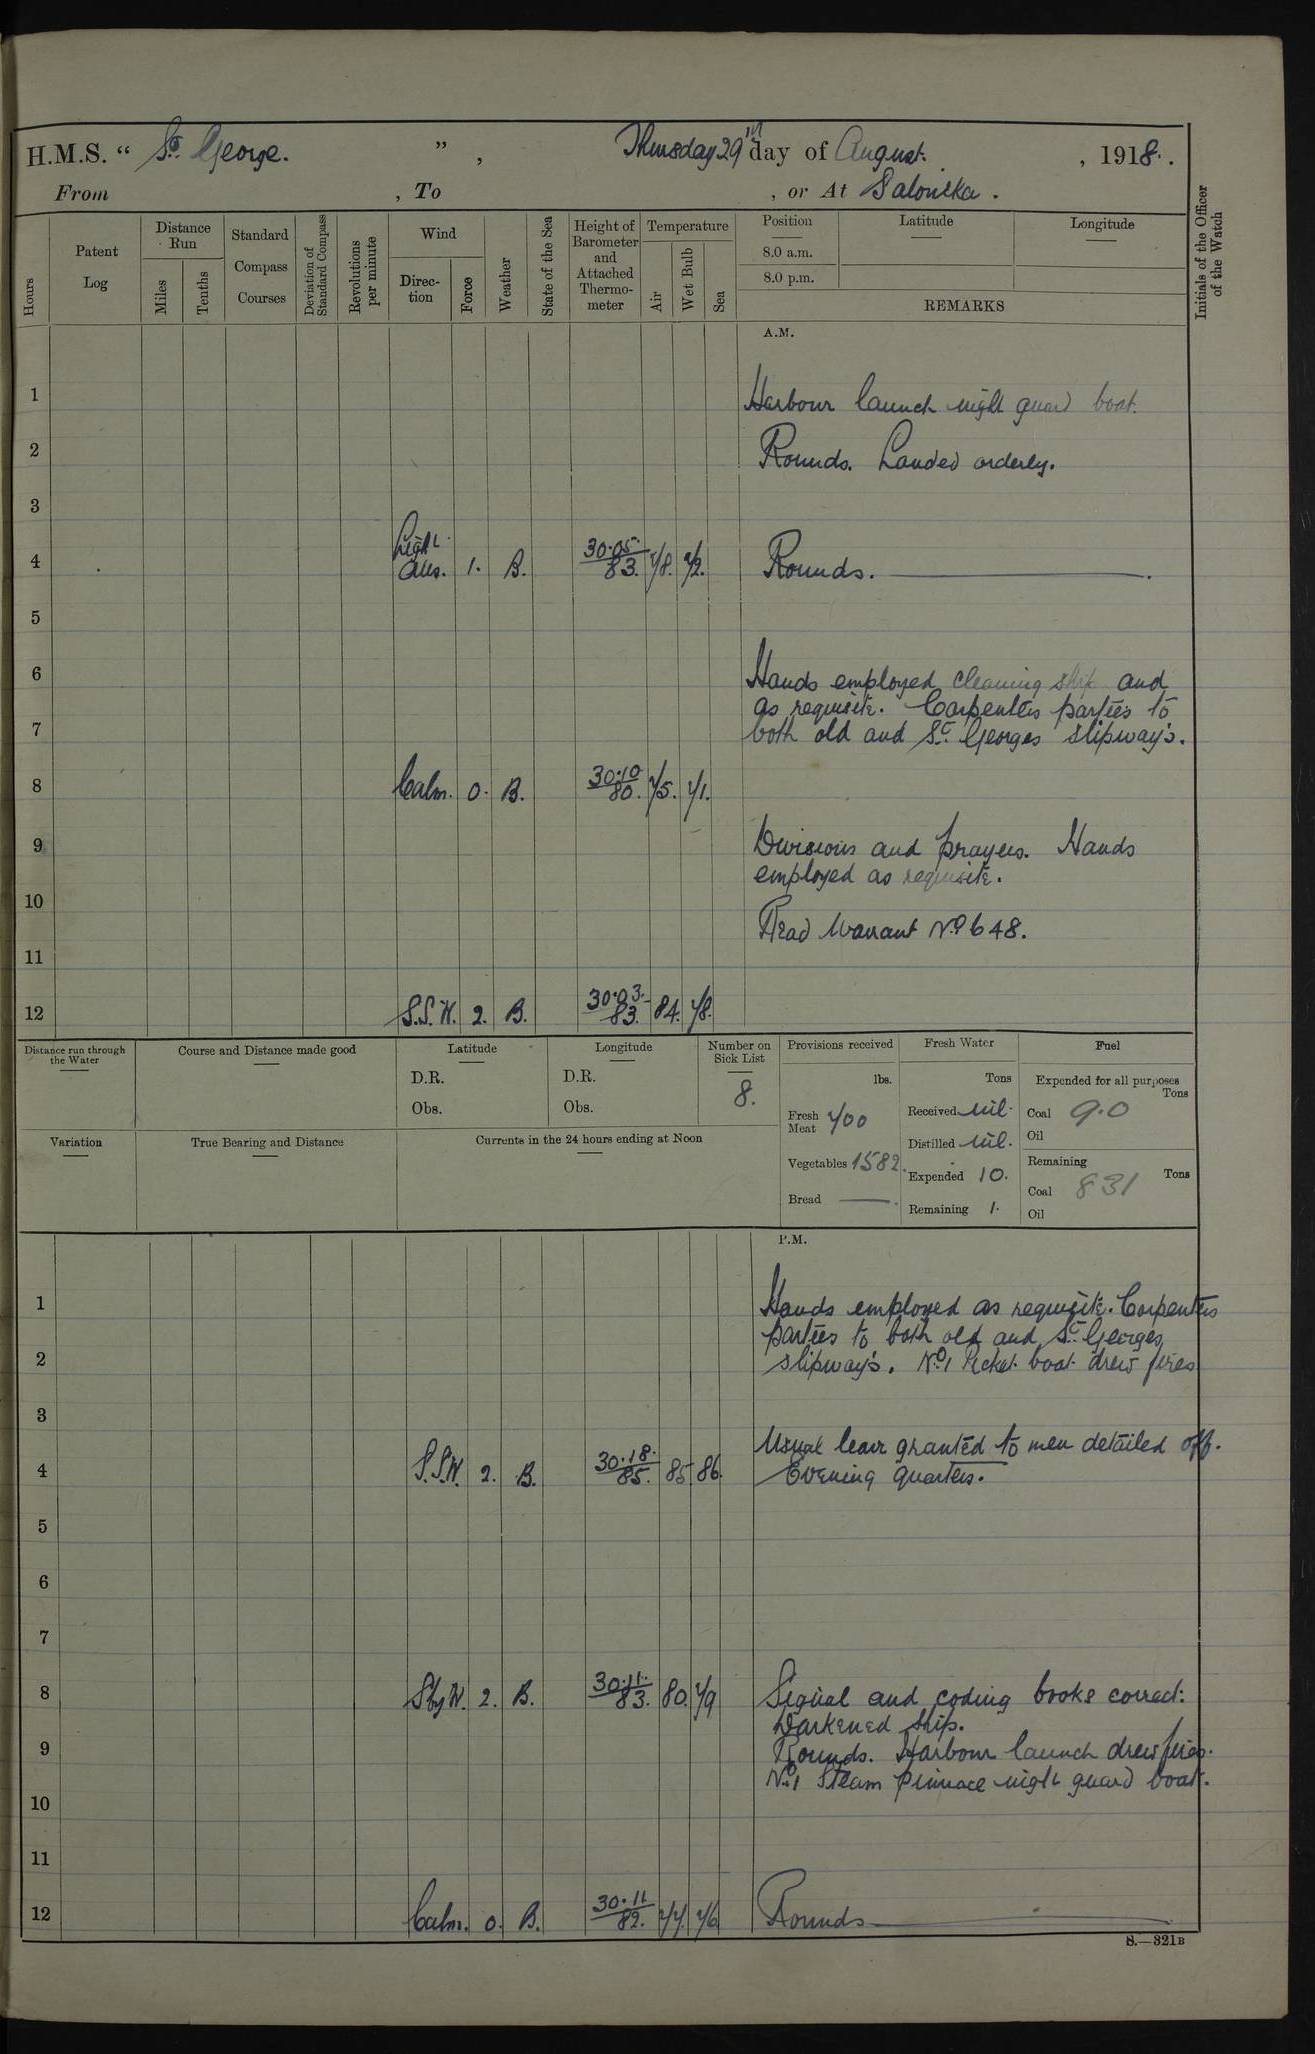 H.M.S. “ St. George. ” , Thursday 29th day of August. , 1918.
From , To , or At Salonika.
Hours
Patent Log
Distance Run
Miles
Tenths
Standard Compass Courses
Deviation of Standard Compass
Revolutions per minute
Wind
Direc-tion
Force
Weather
State of the Sea
Height of Barometer and Attached Thermo-meter
Temperature
Air
Wet Bulb
Sea
Position
Latitude
Longitude
8.0 a.m.
8.0 p.m.
REMARKS
Initials of the Officer of the Watch
A.M.
1 Harbour launch night guard boat.
2 Rounds. Landed orderly.
3
4 Light airs. 1. B. 30.05 83. 78. 72. Rounds.
5
6 Hands employed cleaning ship and
as requisite. Carpenters parties to
7 both old and St. Georges slipway's.
8 Calm. 0. B. 30.10 80. 75. 71.
9 Divisions and prayers. Hands
employed as requisite.
10 Read Warrant No 648.
11
12 S.S.W. 2. B. 30.03. 83. 84. 78.
Distance run through the Water
Course and Distance made good
Latitude
D.R.
Obs.
Longitude
D.R.
Obs.
Number on Sick List
8.
Provisions received
lbs.
Fresh Meat 700
Vegetables 1582.
Bread —
Fresh Water
Tons
Received nil.
Distilled nil.
Expended 10.
Remaining 1.
Fuel
Expended for all purposes
Tons
Coal 9.0
Oil
Remaining
Tons
Coal 831
Oil
Variation
True Bearing and Distance
Currents in the 24 hours ending at Noon
P.M.
1 Hands employed as requisite. Carpenters
parties to both old and St. Georges
2 slipway's. No 1 Picket boat drew fires
3
Usual leave granted to men detailed off.
4 S.S.W. 2. B. 30.18. 85. 85. 86. Evening quarters.
5
6
7
8 S by W. 2. B. 30.11. 83. 80. 79 Signal and coding books correct:
Darkened ship.
9 Rounds. Harbour launch drew fires.
No 1 Steam pinnace night guard boat.
10
11
12 Calm. 0. B. 30.11 82. 77. 76 Rounds
S.—321B